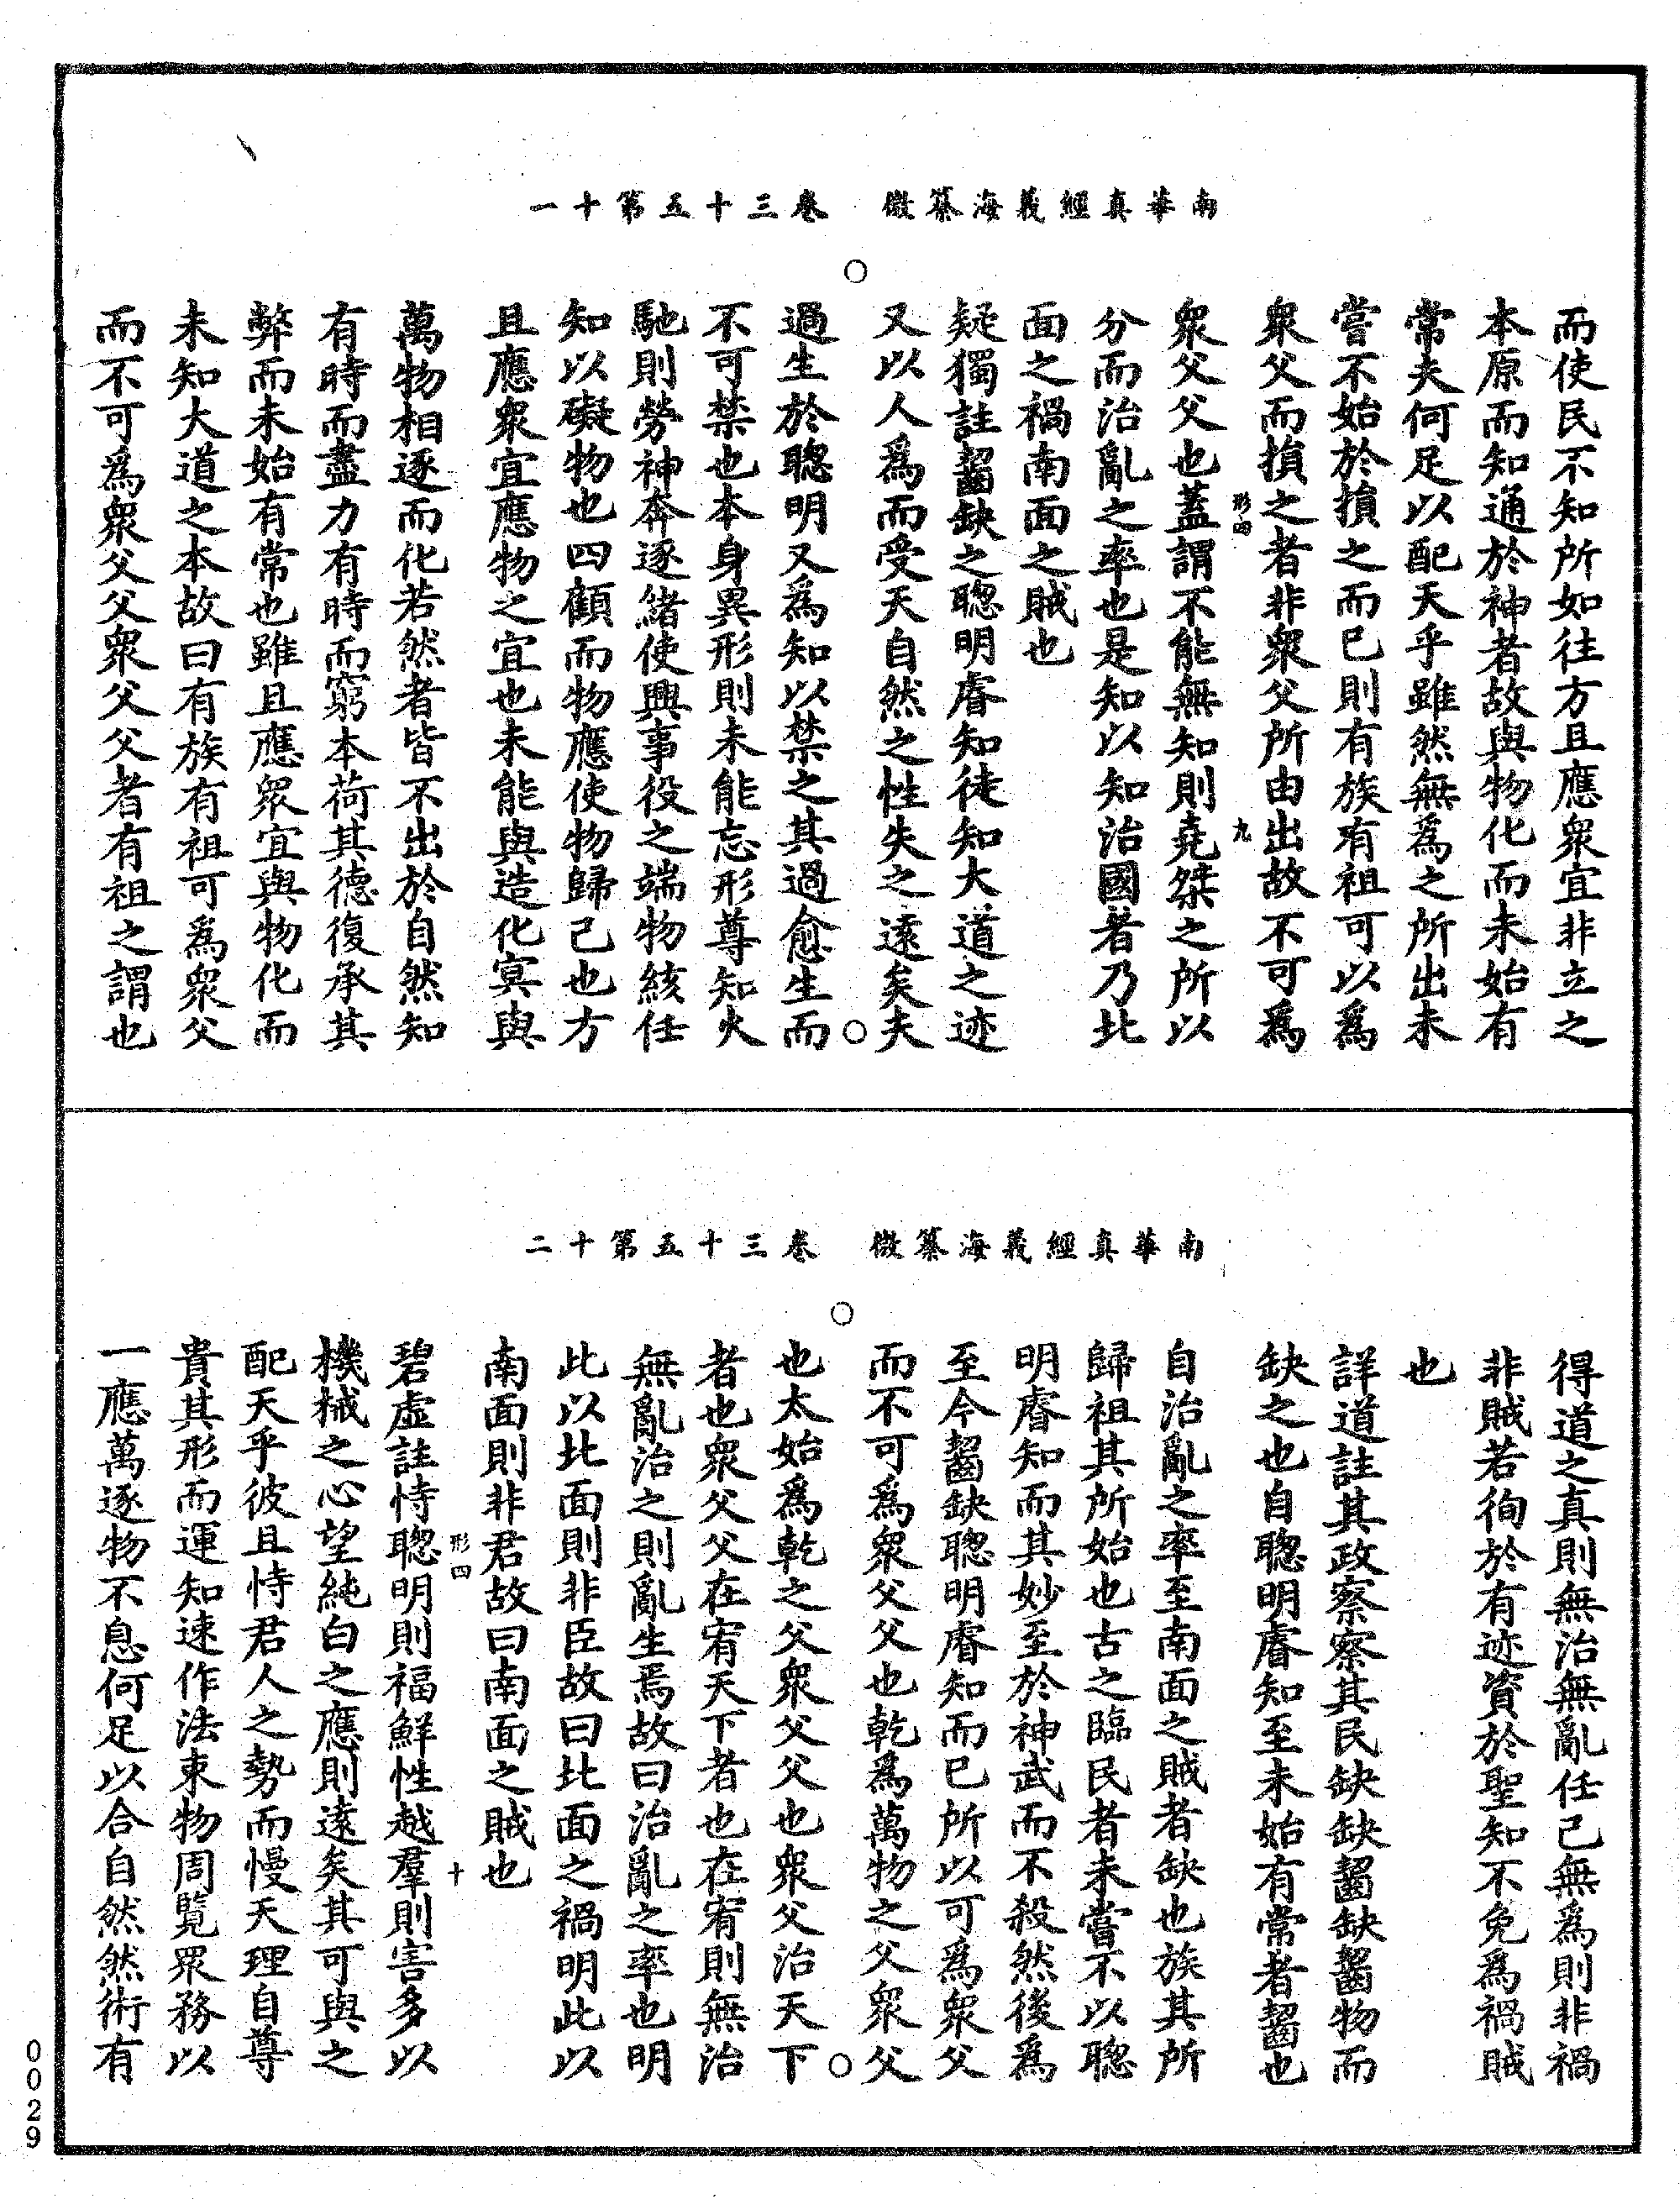 南華真經義海纂微　卷三十五第十一
而使民不知所如往方且應衆宜非立之
本原而知通於神者故與物化而未始有
常夫何足以配天乎雖然無爲之所出未
嘗不始於損之而已則有族有祖可以爲
衆父而損之者非衆父所由出故不可爲
形四　九
衆父父也蓋謂不能無知則堯桀之所以
分而治亂之率也是知以知治國者乃北
面之禍南面之賊也
疑獨註齧缺之聰明睿知徒知大道之迹
又以人爲而受天自然之性失之遠矣夫
過生於聰明又爲知以禁之其過愈生而
不可禁也本身異形則未能忘形尊知火
馳則勞神奔逐緒使興事役之端物絯任
知以礙物也四顧而物應使物歸己也方
且應衆宜應物之宜也未能與造化冥與
萬物相逐而化若然者皆不出於自然知
有時而盡力有時而窮本荷其德復承其
弊而未始有常也雖且應衆宜與物化而
未知大道之本故曰有族有祖可爲衆父
而不可爲衆父父衆父父者有祖之謂也
南華真經義海纂微　卷三十五第十二
得道之真則無治無亂任己無爲則非禍
非賊若徇於有迹資於聖知不免爲禍賊
也
詳道註其政察察其民缺缺齧缺齧物而
缺之也自聰明睿知至未始有常者齧也
自治亂之率至南面之賊者缺也族其所
歸祖其所始也古之臨民者未嘗不以聰
明睿知而其妙至於神武而不殺然後爲
至今齧缺聰明睿知而已所以可爲衆父
而不可爲衆父父也乾爲萬物之父衆父
也太始爲乾之父衆父父也衆父治天下
者也衆父父在宥天下者也在宥則無治
無亂治之則亂生焉故曰治亂之率也明
此以北面則非臣故曰北面之禍明此以
南面則非君故曰南面之賊也
形四　十
碧虛註恃聰明則福鮮性越羣則害多以
機械之心望純白之應則遠矣其可與之
配天乎彼且恃君人之勢而慢天理自尊
貴其形而運知速作法束物周覽眾務以
一應萬逐物不息何足以合自然然術有
0029